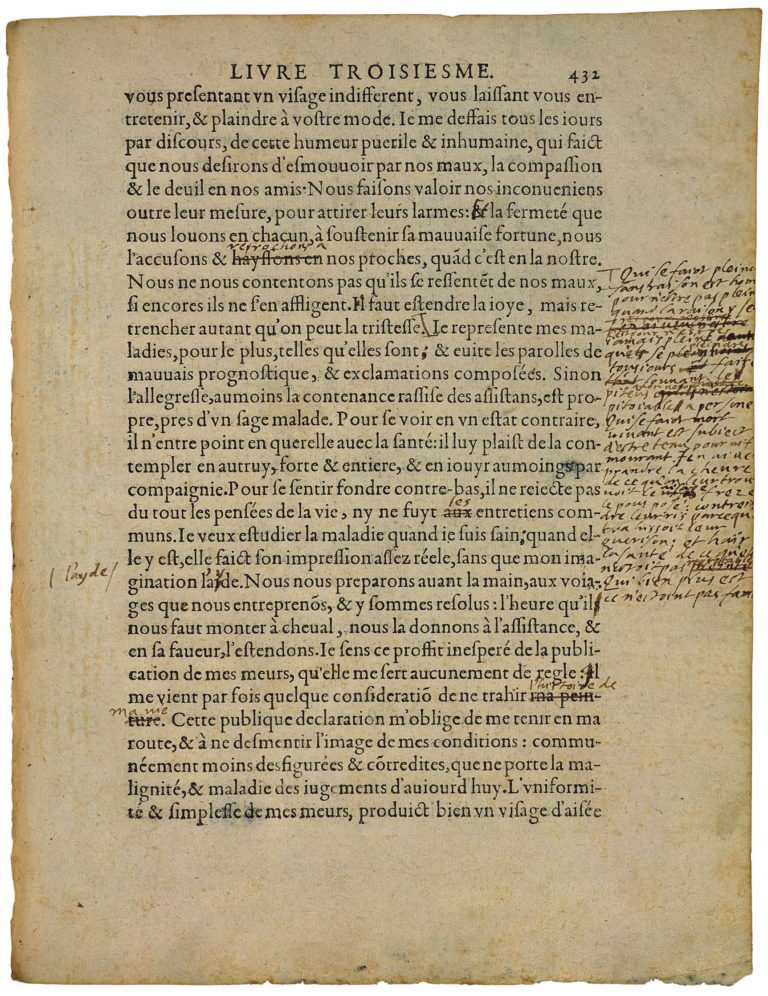 LIVRE TROISIESME. 432
vous presentant vn visage indifferent, vous laissant vous en-
tretenir, & plaindre à vostre mode. Ie me deffais tous les iours
par discours, de cette humeur puerile & inhumaine, qui faict
que nous desirons d'esmouuoir par nos maux, la compassion
& le deuil en nos amis. Nous faisons valoir nos inconueniens
outre leur mesure, pour attirer leurs larmes: & la fermeté que
nous louons en chacun, à soustenir sa mauuaise fortune, nous
reprochons a
l'accusons & hayssons en nos proches, quãd c'est en la nostre.
Nous ne nous contentons pas qu'ils se ressentẽt de nos maux,
si encores ils ne s'en affligent. Il faut estendre la ioye, mais re-
trencher autant qu'on peut la tristesse. Ie represente mes ma-
ladies, pour le plus, telles qu'elles sont, & euite les parolles de
mauuais prognostique, & exclamations composées. Sinon
l'allegresse, aumoins la contenance rassise des assistans, est pro-
pre, pres d'vn sage malade. Pour se voir en vn estat contraire,
il n'entre point en querelle auec la santé: il luy plaist de la con-
templer en autruy, forte & entiere, & en iouyr aumoings par
compaignie. Pour se sentir fondre contre-bas, il ne reiecte pas
les
du tout les pensées de la vie, ny ne fuyt aux entretiens com-
muns. Ie veux estudier la maladie quand ie suis sain: quand el-
le y est, elle faict son impression assez réele, sans que mon ima-
gination l'ayde. Nous nous preparons auant la main, aux voia-
ges que nous entreprenõs, & y sommes resolus: l'heure qu'il
nous faut monter à cheval, nous la donnons à l'assistance, &
en sa faueur, l'estendons. Ie sens ce proffit inesperé de la publi-
cation de mes meurs, qu'elle me sert aucunement de regle: Il
l'histoire de
me vient par fois quelque consideratiõ de ne trahir ma pein-
ma vie
ture. Cette publique declaration m'oblige de me tenir en ma
route, & à ne desmentir l'image de mes conditions: commu-
néement moins desfigurées & cõtredites, que ne porte la ma-
lignité, & maladie des iugements d'auiourd'huy. L'vniformi-
té & simplesse de mes meurs, produict bien vn visage d'aisée
/ l'ayde /
Qui se faict plein
sans raison est hom
pour n'estre pas plein
quand la raison y se
iamais pleint
se plein
tousiours faict
piteus
pitoiable a persone
Qui se faict mort
viuant est subiect
d'estre tenu pour vif
mourant J'en ai ve
prandre la cheure
de ce qu'on leur trou
voit le frez e
le pous posé: contrei
dre leur ris parcequ
trahissoit leur
guerison: et hair
la santé de ce qu'el
n'estoit pas
Qui bien plus est
ce n'estoint pas fam